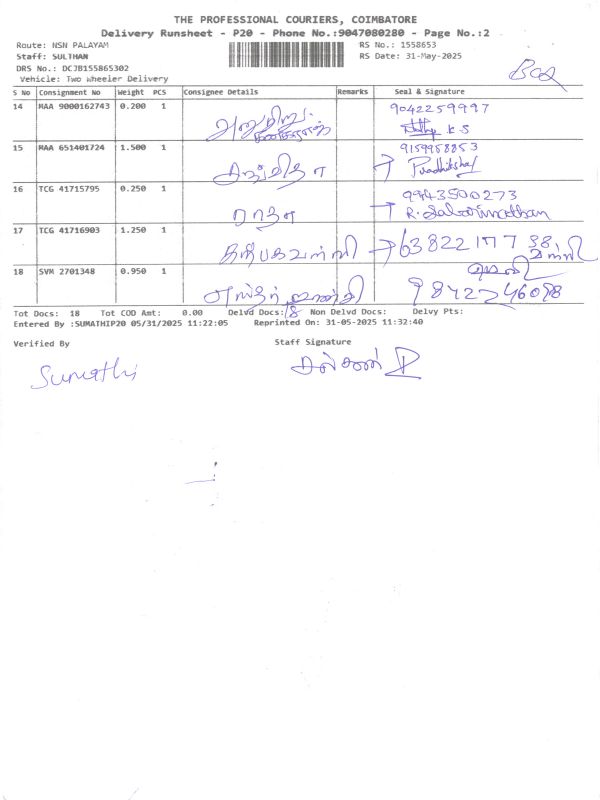 THE PROFESSIONAL COURIERS, COIMBATORE
Delivery Runsheet - P20 - Phone No.:9047080280 - Page No.:2
Route: NSN PALAYAM RS No.: 1558653
Staff: SULTHAN RS Date: 31-May-2025
DRS No.: DCJB155865302
Vehicle: Two Wheeler Delivery
S No Consignment No Weight PCS Consignee Details Remarks Seal & Signature
14 MAA 9000162743 0.200 1 9042259997
K S
15 MAA 651401724 1.500 1 9159958853
16 TCG 41715795 0.250 1 ராதா 9943500273
R. Sabarinathan
17 TCG 41716903 1.250 1
18 SVM 2701348 0.950 1
Tot Docs: 18 Tot COD Amt: 0.00 Delvd Docs: 18 Non Delvd Docs: Delvy Pts:
Entered By :SUMATHIP20 05/31/2025 11:22:05 Reprinted On: 31-05-2025 11:32:40
Verified By Staff Signature
Sumathi